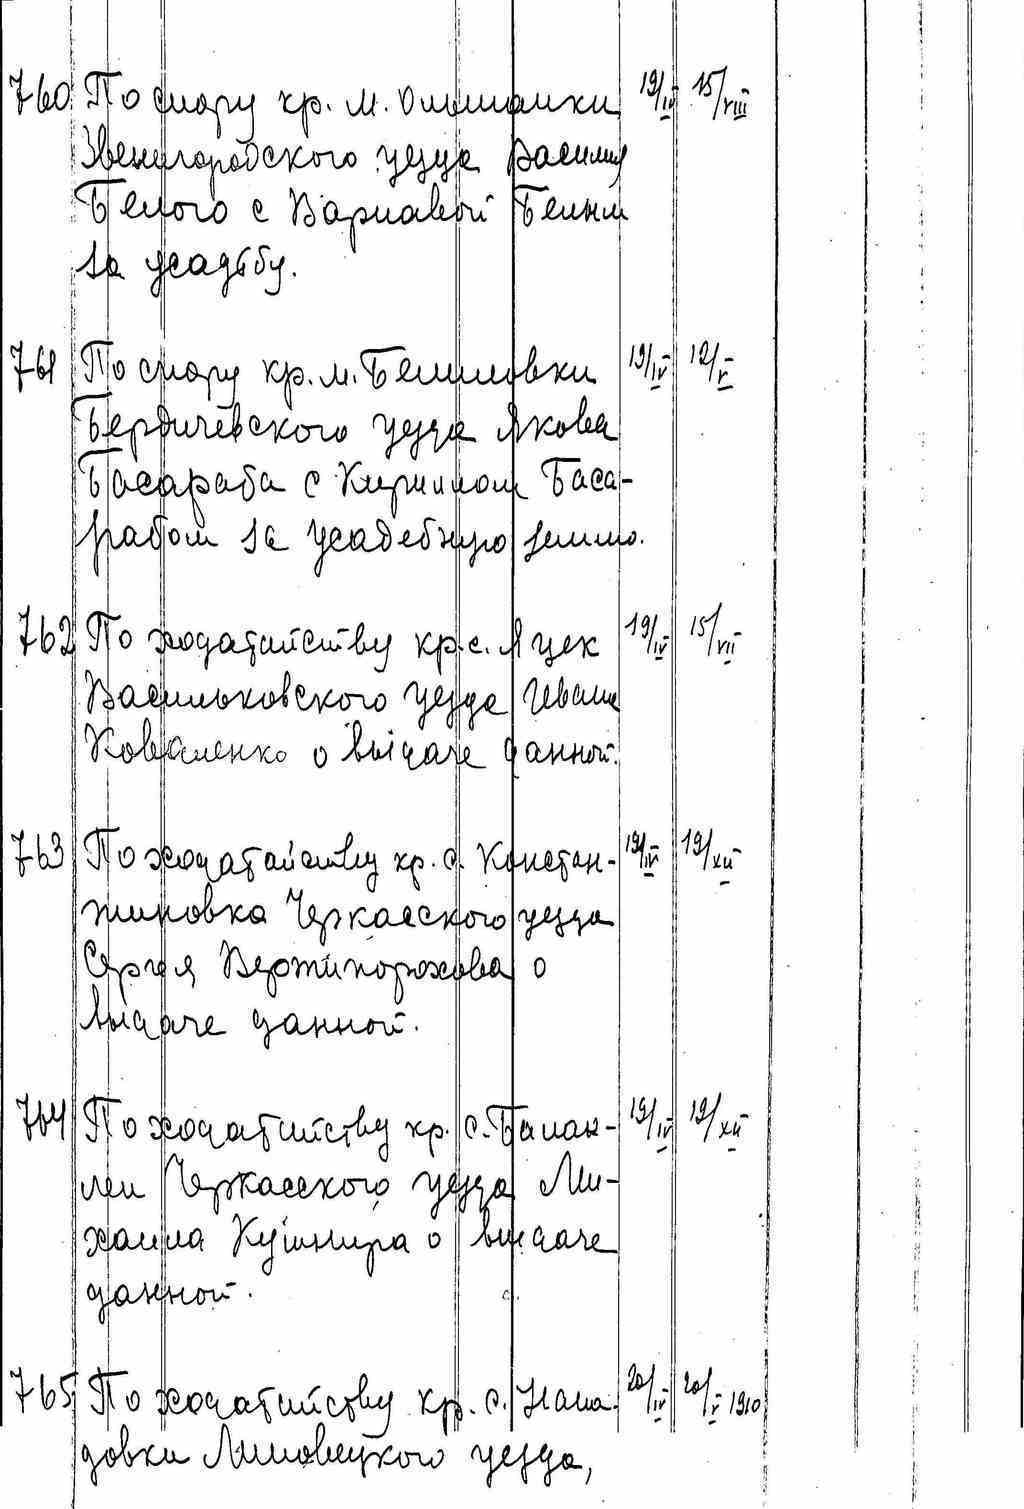 760 По спору кр. м. Ольшанки 19/IV 15/VIII
Звенигородского уезда Василия
Белого с Варлавой Белым
за усадьбу.
761 По спору кр. м. Белиловки 19/IV 12/V
Бердичевского уезда Якова
Басараба с Кириллом Баса-
рабом за усадебную землю.
762 По ходатайству кр. с. Яцек 19/IV 15/VII
Васильковского уезда Ивана
Коваленко о выдаче данной.
763 По ходатайству кр. с. Констан- 19/IV 19/XII
тиновка Черкасского уезда
Сергея Вертипорохова о
выдаче данной.
764 По ходатайству кр. с. Балак- 19/IV 19/XII
леи Черкасского уезда Ми-
хаила Кушнира о выдаче
данной.
765 По ходатайству кр. с. 20/IV 20/V 1910
довки Липовецкого уезда,